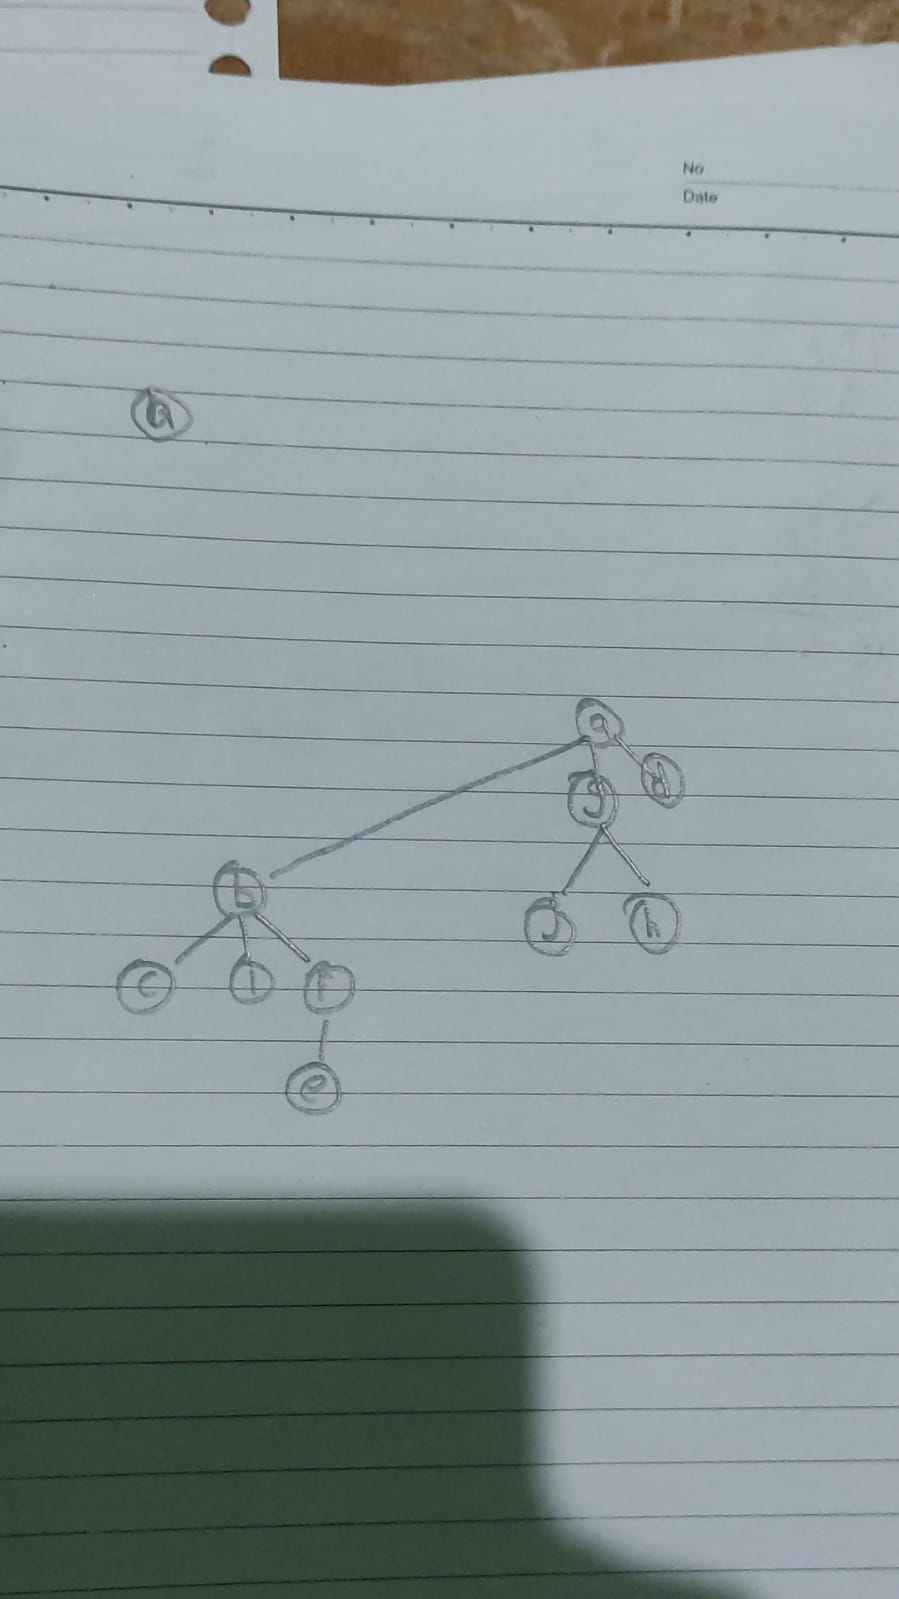 No
Date
a
a
g
d
b
j
h
c
i
f
e